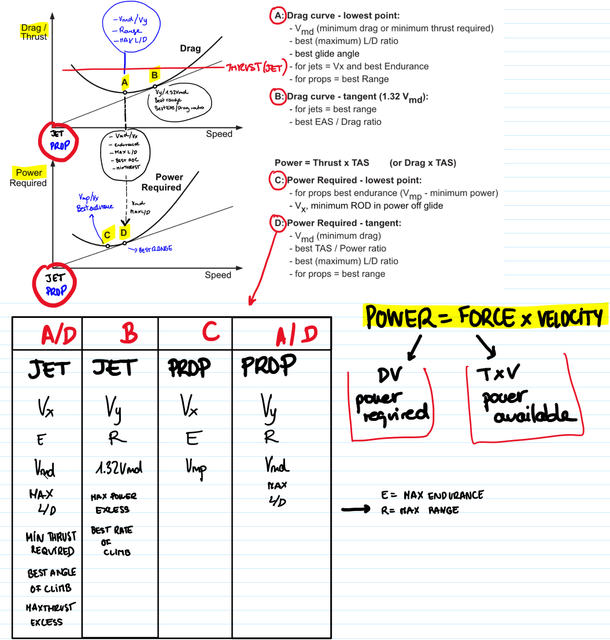 Drag /
Thrust
- Vmd/Vy
- Range
- MAX L/D
Drag
THRUST (JET)
A
B
Vy/1.32Vmd
Best range
Best EAS/Drag ratio
JET
PROP
Speed
- Vmd/Vx
- Endurance
- MAX L/D
- Best AOC
- MINTHRUST
Power
Required
Power
Required
Vmp/Vx
Best endurance
Vmd
MAX L/D
C
D
BEST RANGE
JET
PROP
Speed
A: Drag curve - lowest point:
- Vmd (minimum drag or minimum thrust required)
- best (maximum) L/D ratio
- best glide angle
- for jets = Vx and best Endurance
- for props = best Range
B: Drag curve - tangent (1.32 Vmd):
- for jets = best range
- best EAS / Drag ratio
Power = Thrust x TAS (or Drag x TAS)
C: Power Required - lowest point:
- for props best endurance (Vmp - minimum power)
- Vx, minimum ROD in power off glide
D: Power Required - tangent:
- Vmd (minimum drag)
- best TAS / Power ratio
- best (maximum) L/D ratio
- for props = best range
A/D B C A/D
JET JET PROP PROP
Vx Vy Vx Vy
E R E R
Vmd 1.32Vmd Vmp Vmd
MAX
L/D
MIN THRUST
REQUIRED
BEST ANGLE
OF CLIMB
MAX THRUST
EXCESS
MAX POWER
EXCESS
BEST RATE
OF
CLIMB
MAX
L/D
POWER = FORCE x VELOCITY
DV
power
required
T x V
power
available
E = MAX ENDURANCE
R = MAX RANGE